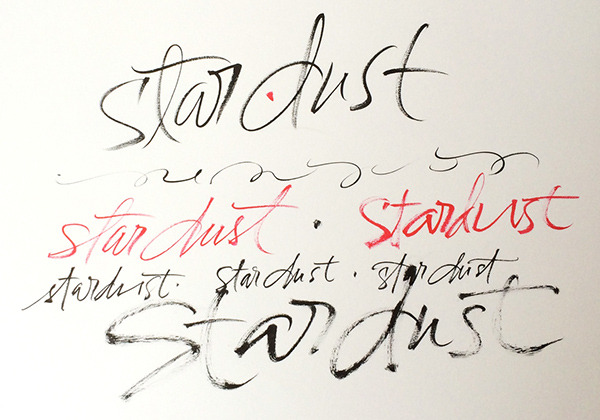 star·dust
stardust · stardust
stardust · stardust · stardust
stardust